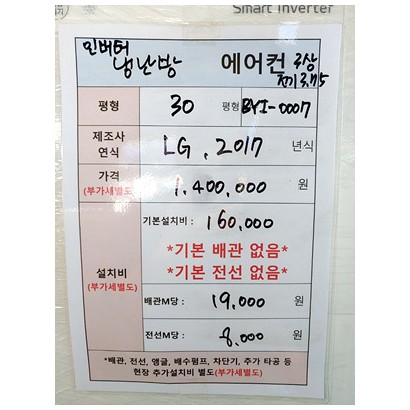 Smart Inverter
인버터
냉난방 에어컨 3상
전기 3.75
평형 30 평형 BYI-0007
제조사 연식 LG, 2017 년식
가격 (부가세별도) 1,400,000 원
기본설치비 : 160,000
*기본 배관 없음*
*기본 전선 없음*
설치비 (부가세별도)
배관M당 : 19,000 원
전선M당 : 8,000 원
*배관, 전선, 앵글, 배수펌프, 차단기, 추가 타공 등
현장 추가설치비 별도(부가세별도)